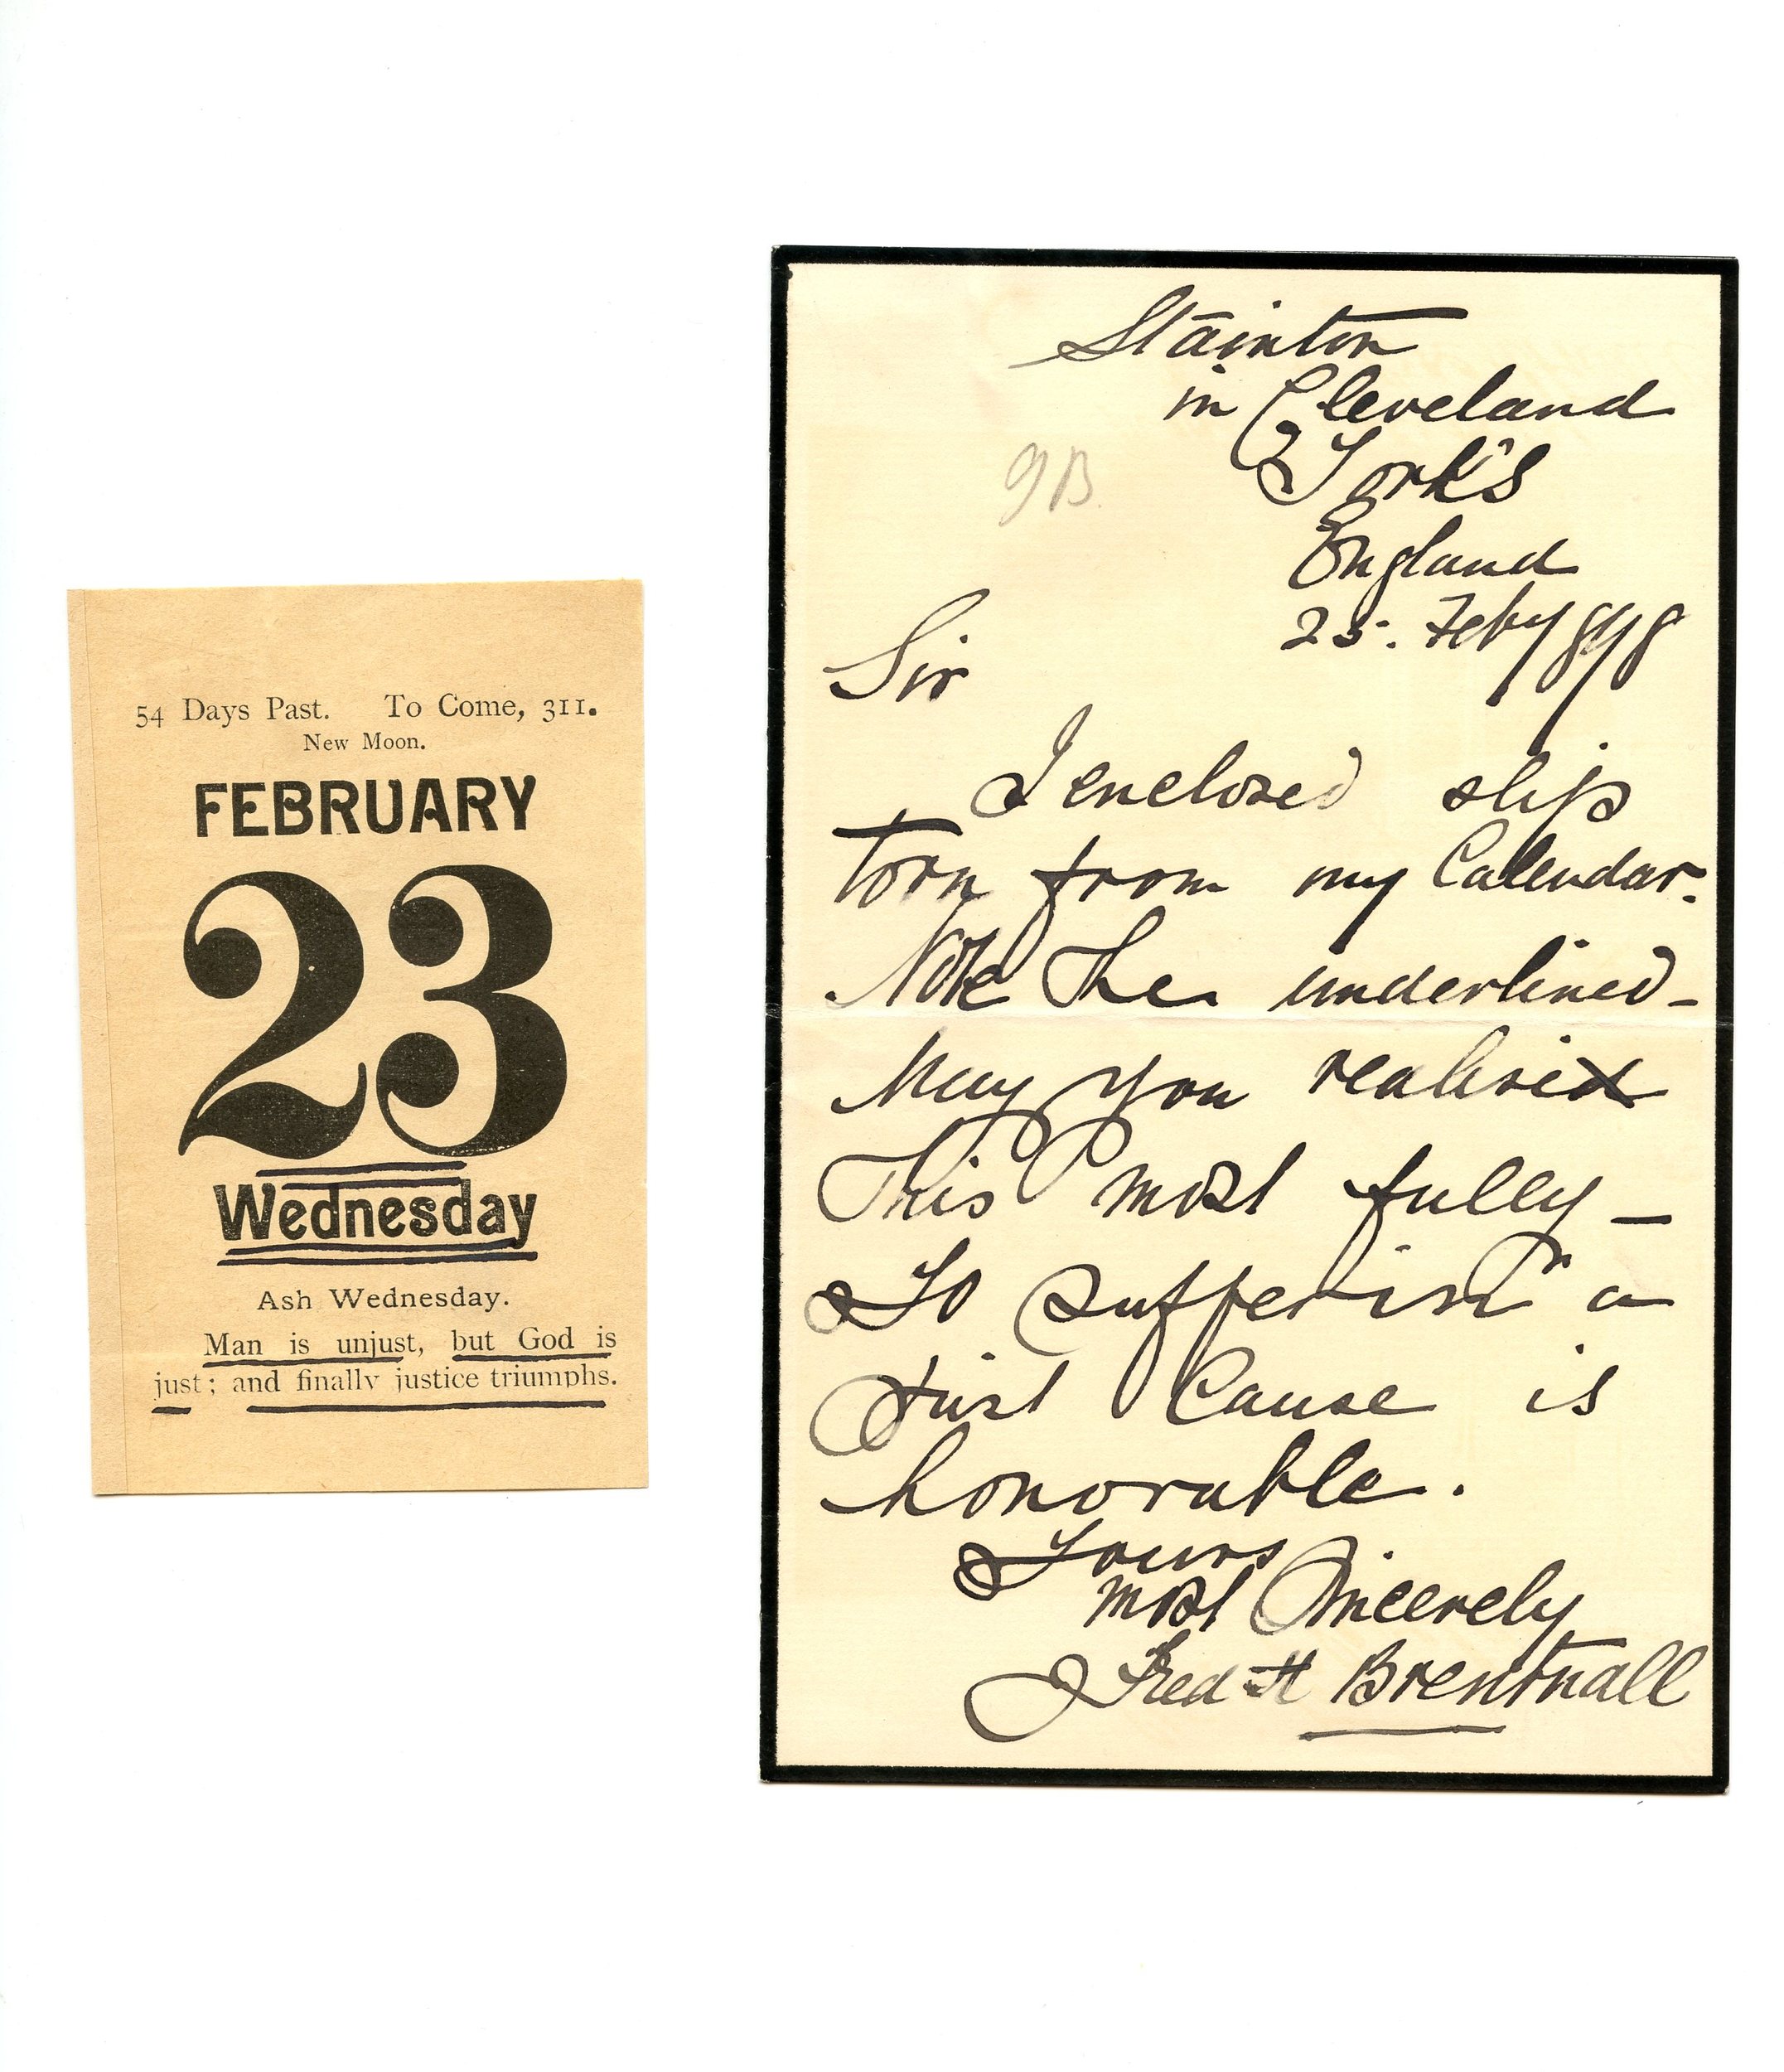 54 Days Past. To Come, 311.
New Moon.
FEBRUARY
23
Wednesday
Ash Wednesday.
Man is unjust, but God is
just; and finally justice triumphs.
Stainton
in Cleveland
York's
England
25. Feby 1898
9B.
Sir
I enclosed slip
torn from my Calendar.
Note The underlined—
May you realised
This most fully—
To suffer in a
Just Cause is
honorable.
Yours
most Sincerely
Fred H Brentnall